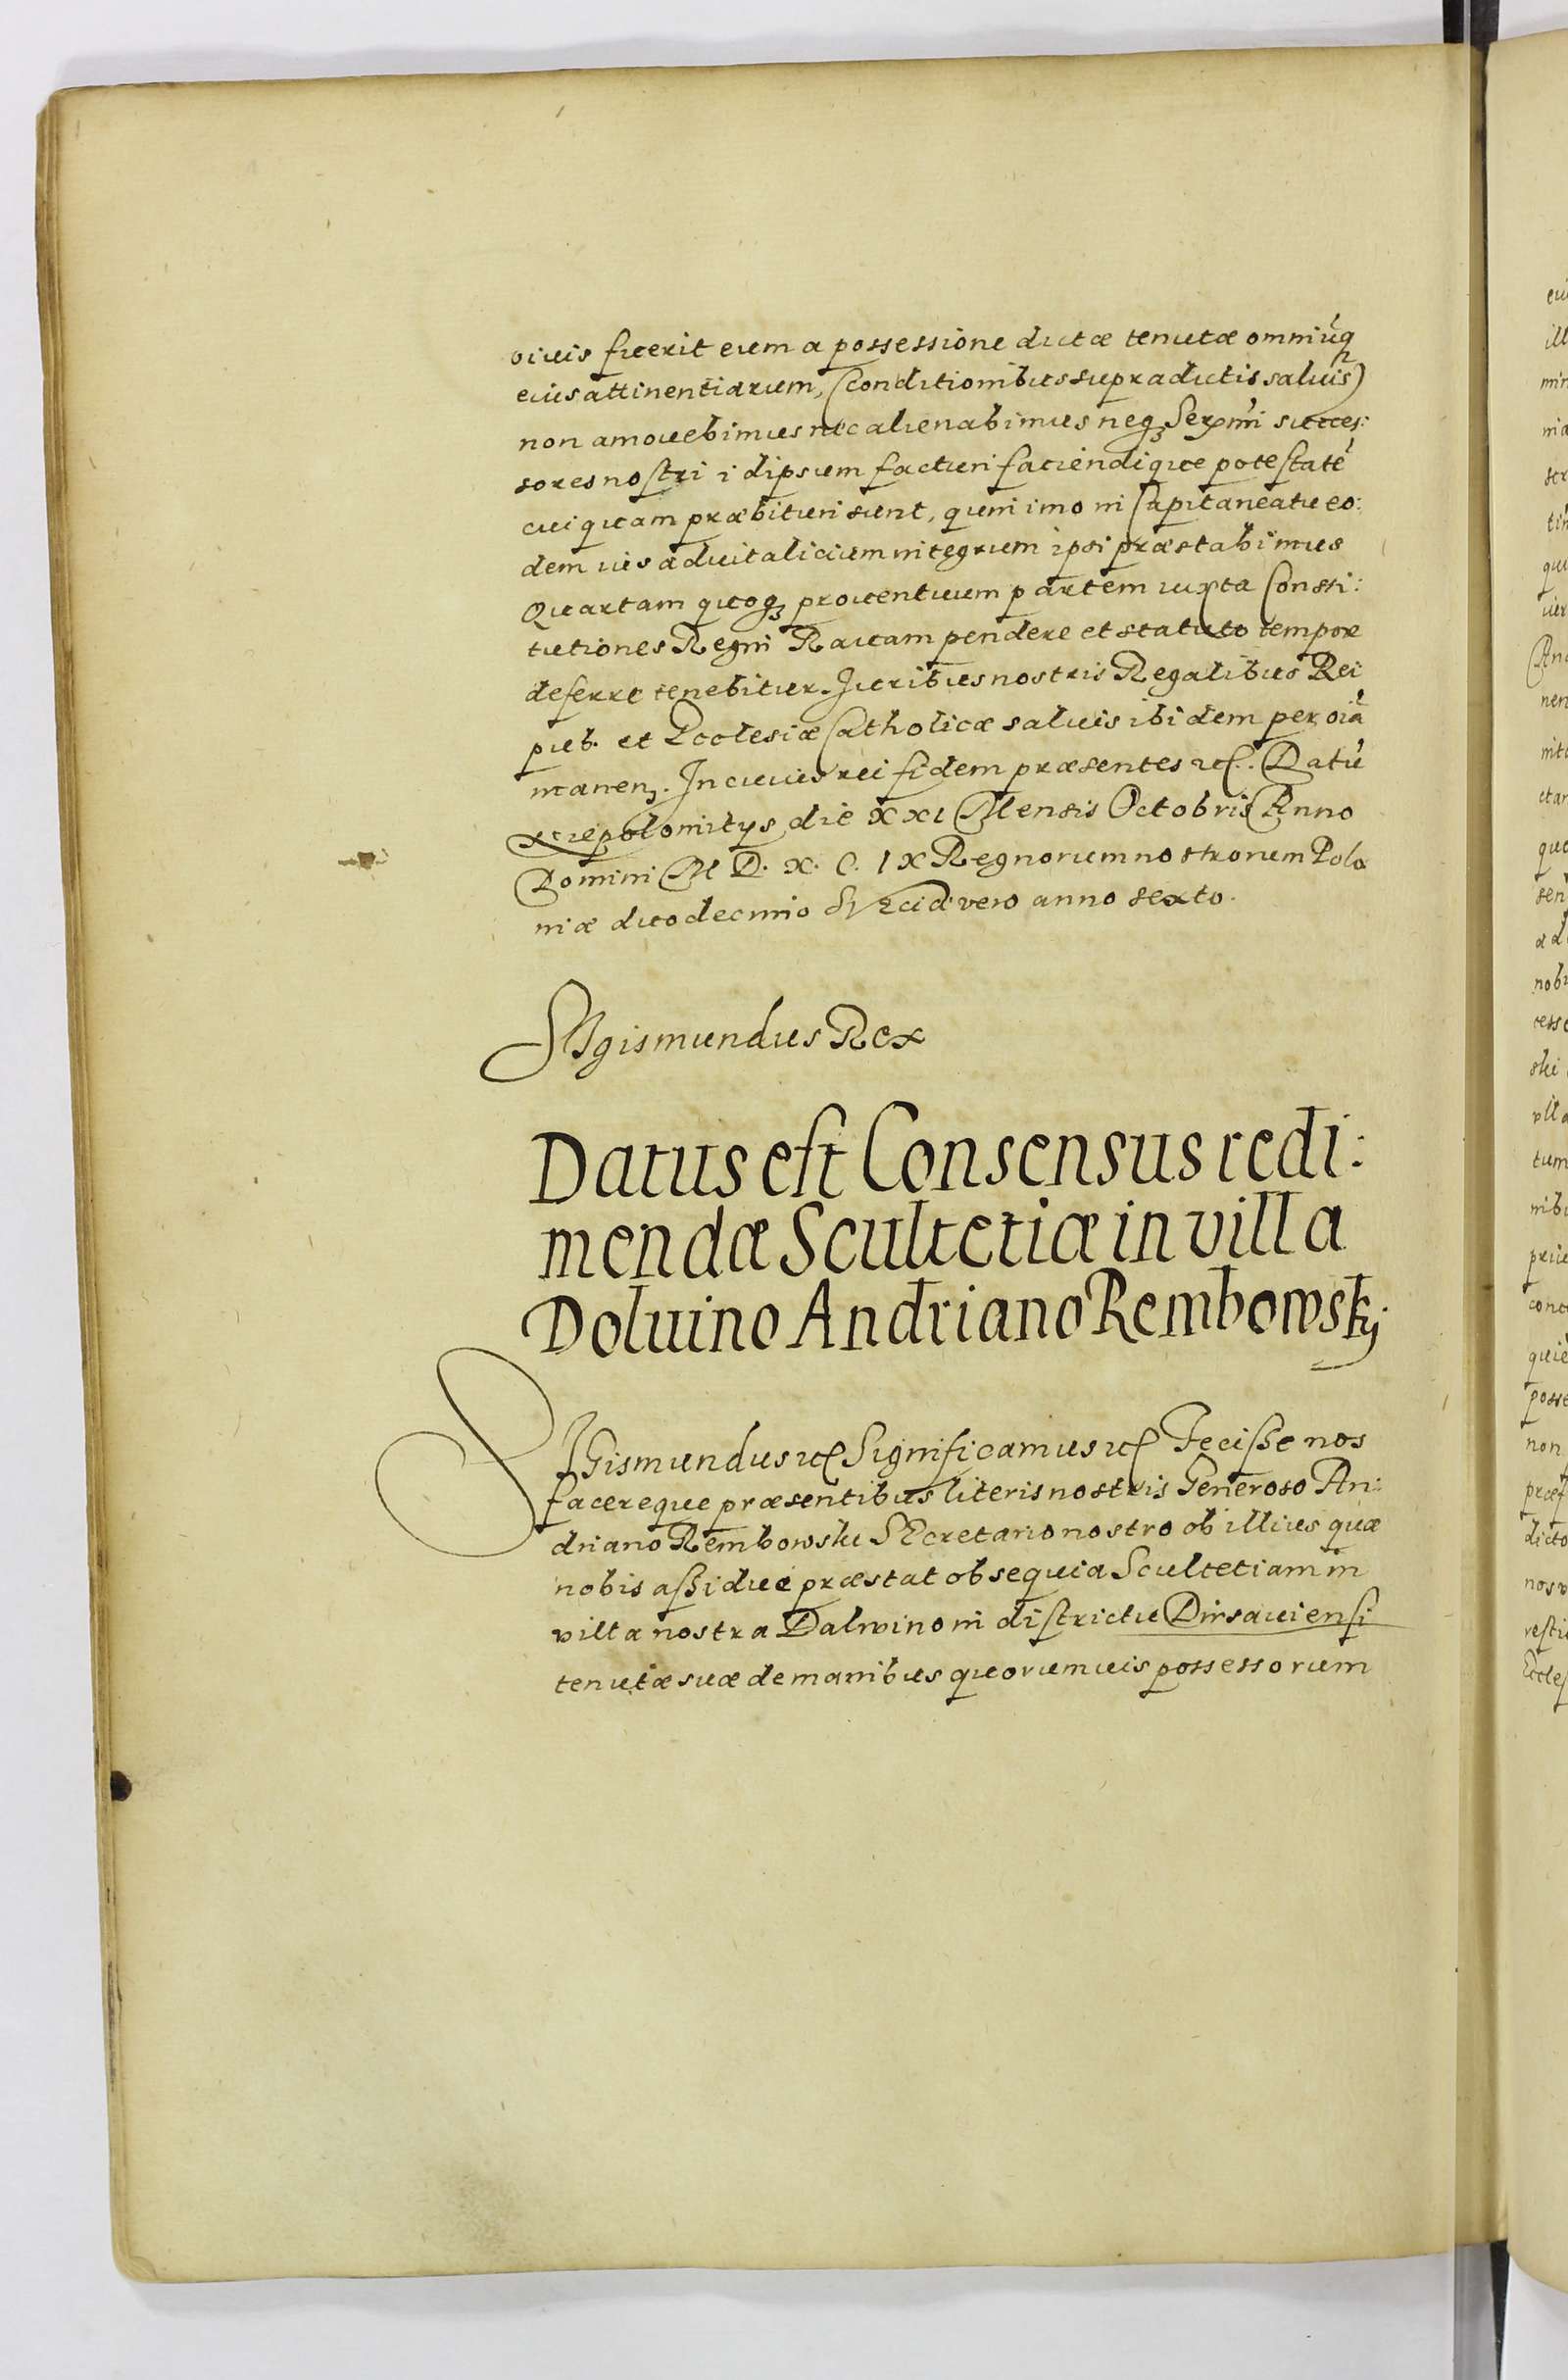 viuis fuerit eum a possessione dictæ tenutæ omniūq
eius attinentiarum, (conditionibus supradictis saluis)
non amouebimus nec alienabimus neqꝫ Serꝫmi succes:
sores nostri idipsum facturi faciendique potestatē
cuiquam præbituri sunt, quin imo in Capitaneatu eo:
dem ius aduitalicium integrum ipsi præstabimus
Quartam quoqꝫ prouentuum partem iuxta Consti:
tutiones Regni Rauam pendere et statuto tempore
deferre tenebitur. Iuribus nostris Regalibus Rei
pub. et Ecclesiæ Catholicæ saluis ibidem per oīa
manenꝫ. In cuius rei fidem præsentes etc. Datū
Niepolomitys die XXI Mensis Octobris Anno
Domini M D. X. C. IX Regnorum nostrorum Polo
niæ duodecimo Sveciæ vero anno sexto.
SIgismundus Rex
Datus est Consensus redi:
mendæ Scultetiæ in villa
Doluino Andriano Rembowsky
SIGismundus etc Significamus etc Fecisse nos
facereque præsentibus literis nostris Generoso An:
driano Rembowski SEcretario nostro ob illius quæ
nobis assidue præstat obsequia Scultetiam in
villa nostra Dalwino in districtu Dirsauiensi
tenutæ suæ de manibus quorumuis possessorum